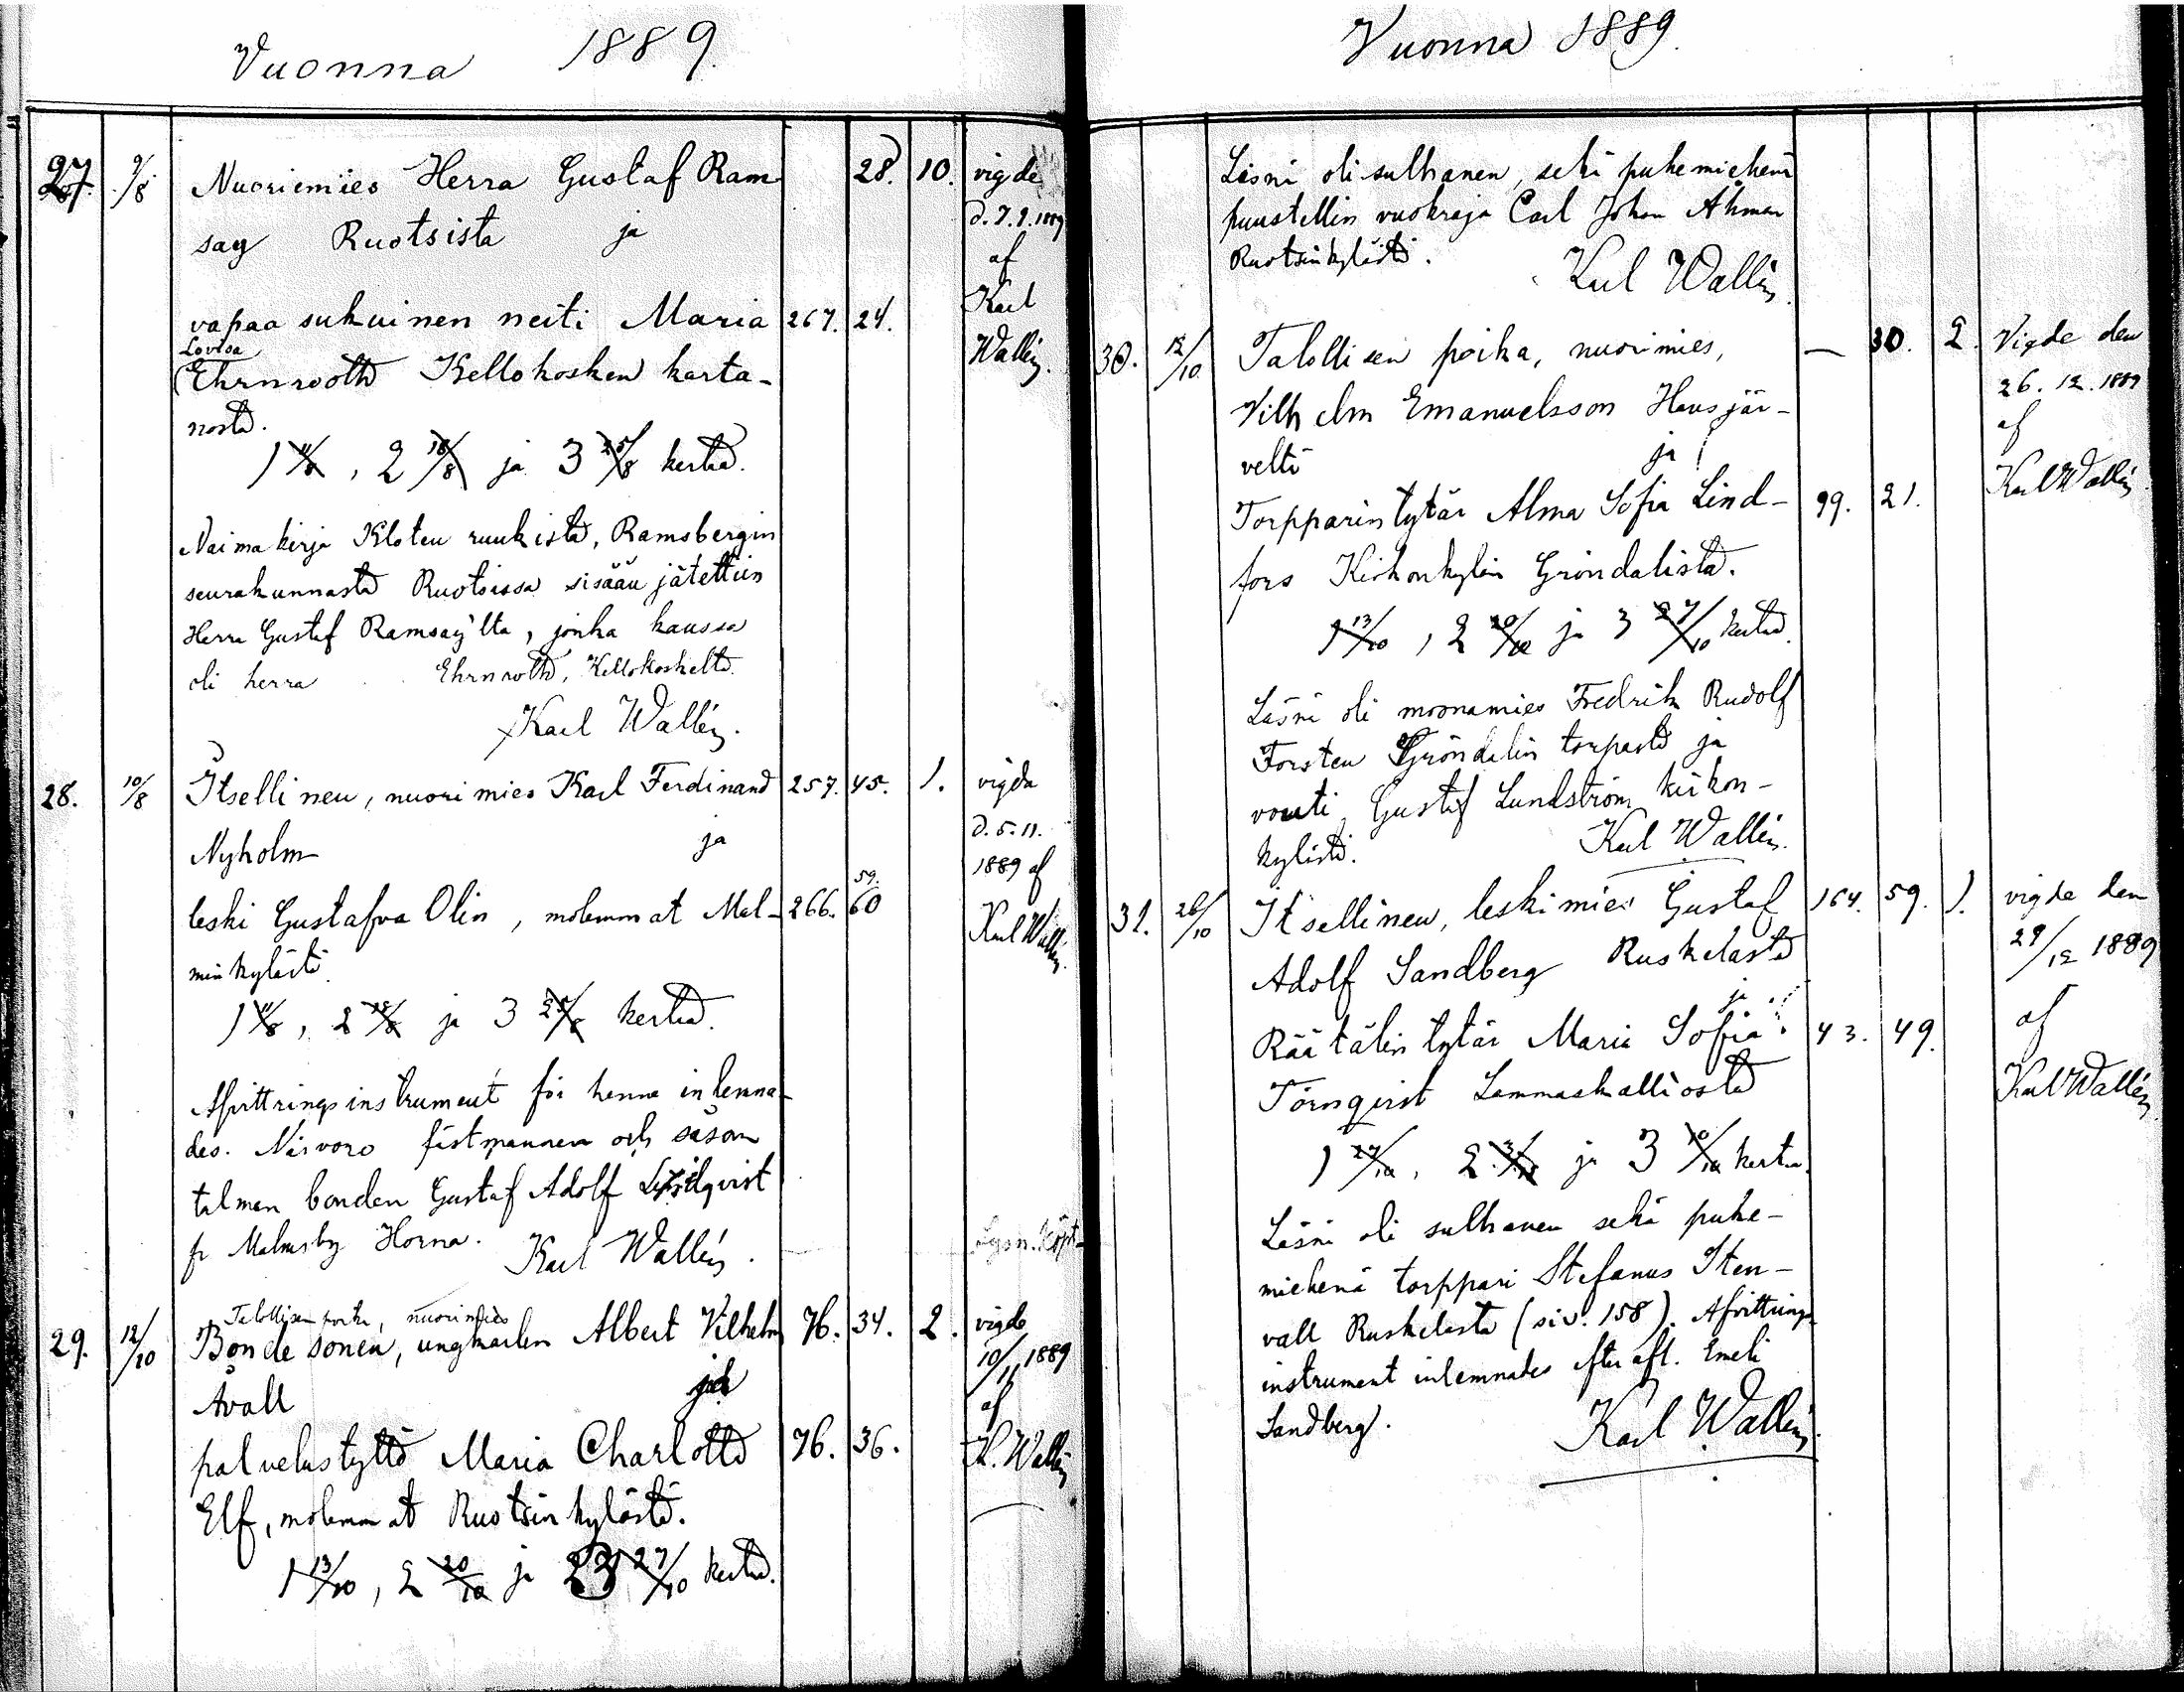 Vuonna 1889.
27. 9/8 Nuoriemies Herra Gustaf Ram- 28. 10. vigde
d. 7.9.1889
say Ruotsista ja af
Karl
vapaa sukuinen neiti Maria 267. 24.
Lovisa Wallén.
Ehrnrooth Kellokosken karta-
nosta.
1 11/8, 2 18/8 ja 3 25/8 kertа.
Naimakirja Kloten ruukista, Ramsbergin
seurakunnasta Ruotsissa sisään jätettiin
Herra Gustaf Ramsay'lta, jonka kanssa
oli herra Ehrnrooth, Kellokoskelta.
Karl Wallén.
28. 10/8 Itsellinen, nuorimies Karl Ferdinand 257. 45. 1. vigda
d. 5.11.
Nyholm ja 1889 af
59.
leski Gustafva Olin, molemmat Mal- 266. 60 Karl Wallén.
minkylästä.
1 11/8, 2 18/8 ja 3 25/8 kerta.
Afvittringsinstrument för henne inlemna-
des. Närvoro fästmannen och såsom
talman bonden Gustaf Adolf
fr Malmsby Horna. Karl Wallén.
Talollisen poika, nuorimies
29. 12/10 Bondesonen, ungkarlen Albert Vilhelm 76. 34. 2. vigde
10/11 1889
Åvall ja af
palvelustyttö Maria Charlotta 76. 36. K. Wallén
Elf, molemmat Ruotsinkylästä.
1 13/10, 2 20/10 ja 3 27/10 kertа.
Vuonna 1889.
Läsnä oli sulhanen, sekä puhemiehenä
puustellin vuokraaja Carl Johan Åhman
Ruotsinkylästä.
Karl Wallén.
30. 12/10 Talollisen poika, nuorimies, — 30. 2. Vigde den
26.12.1889
Vilhelm Emanuelsson Hausjär- af
veltä ja Karl Wallén
Torpparintytär Alma Sofia Lind- 99. 21.
fors Kirkonkylän Gröndalista.
1 13/10, 2 20/10 ja 3 27/10 kertа.
Läsnä oli moonamies Fredrik Rudolf
Forsten Gröndalin torpasta ja
vouti Gustaf Lundström kirkon-
kylästä. Karl Wallén.
31. 26/10 Itsellinen, leskimies Gustaf 164. 59. 1. vigde den
29/12 1889
Adolf Sandberg Ruskelasta
ja af
Räätälin tytär Maria Sofia 43. 49.
Karl Wallén
Törnqvist Lammaskalliosta
1 27/10, 2 3/11 ja 3 10/11 kerta.
Läsnä oli sulhanen sekä puhe-
miehenä torppari Stefanus Sten-
vall Ruskelasta (siv. 158). Afvittrings
instrument inlemnades efter afl. Emeli
Sandberg. Karl Wallén.